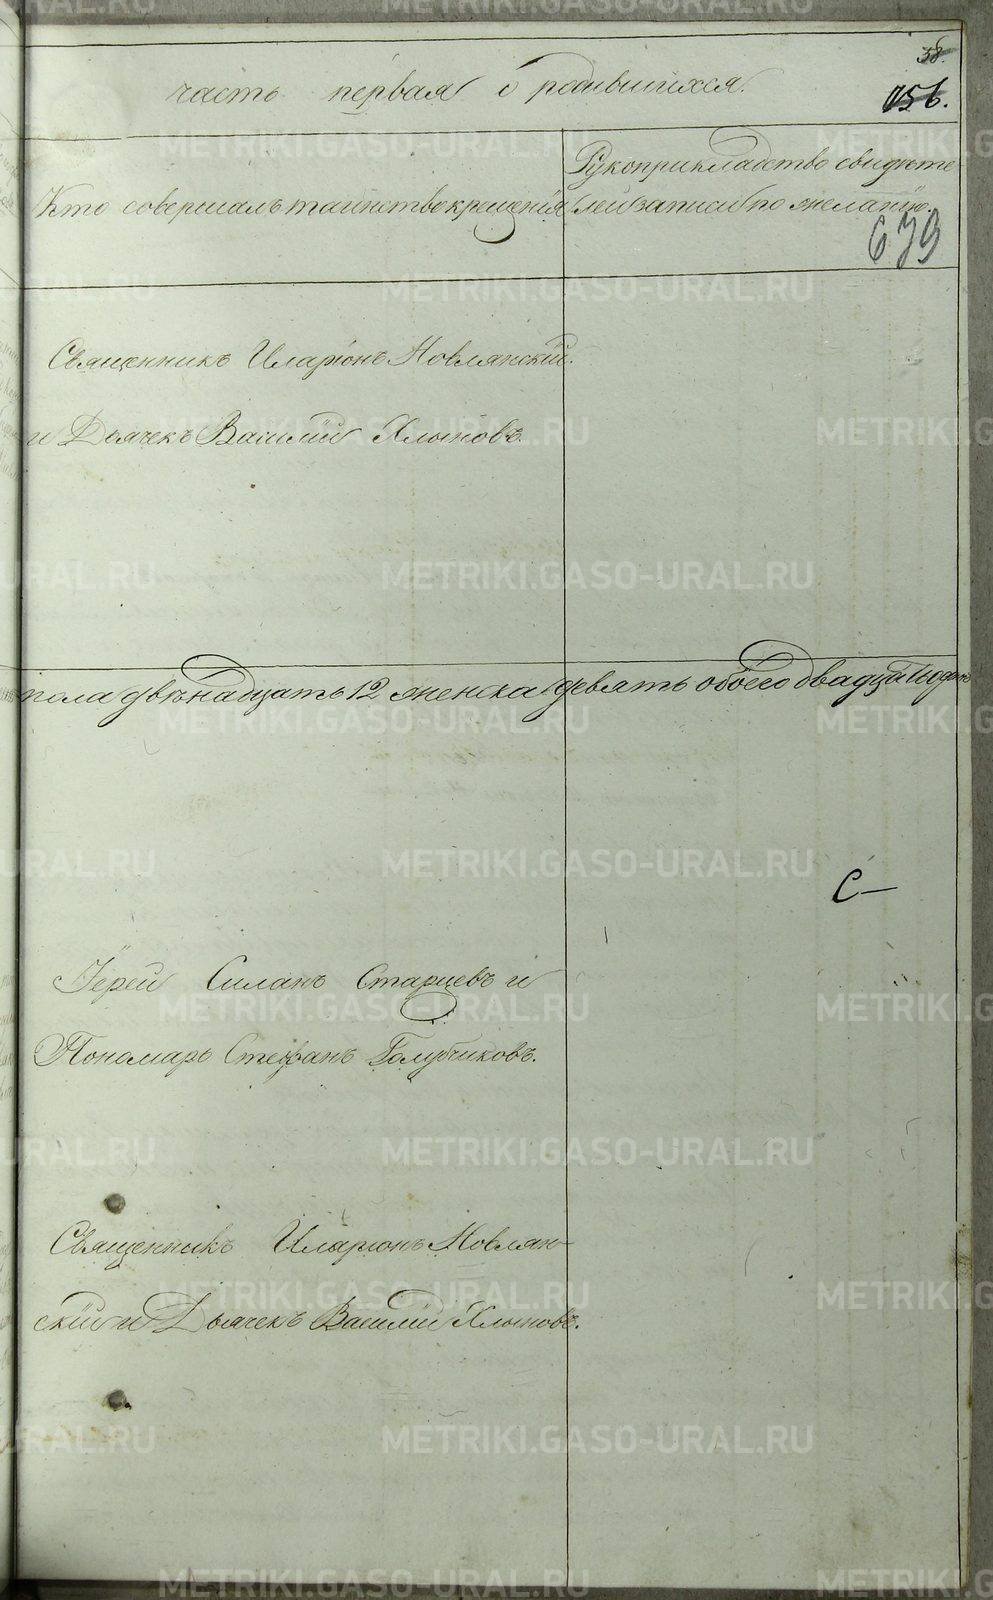 38.
часть первая о родившихся.
156.
Кто совершалъ таинство крещенія
Рукоприкладство свидѣте
лей записи по желанію.
679
Священникъ Иларіонъ Новлянскій
и Дьячекъ Василій Хлыновъ.
пола двѣнадцать 12 женска девять обоего двадцать одинъ
С—
Іерей Силанъ Старцевъ и
Пономарь Стефанъ Голубчиковъ.
Священникъ Иларіонъ Новлян-
скій и Дьячекъ Василій Хлыновъ.
METRIKI.GASO-URAL.RU